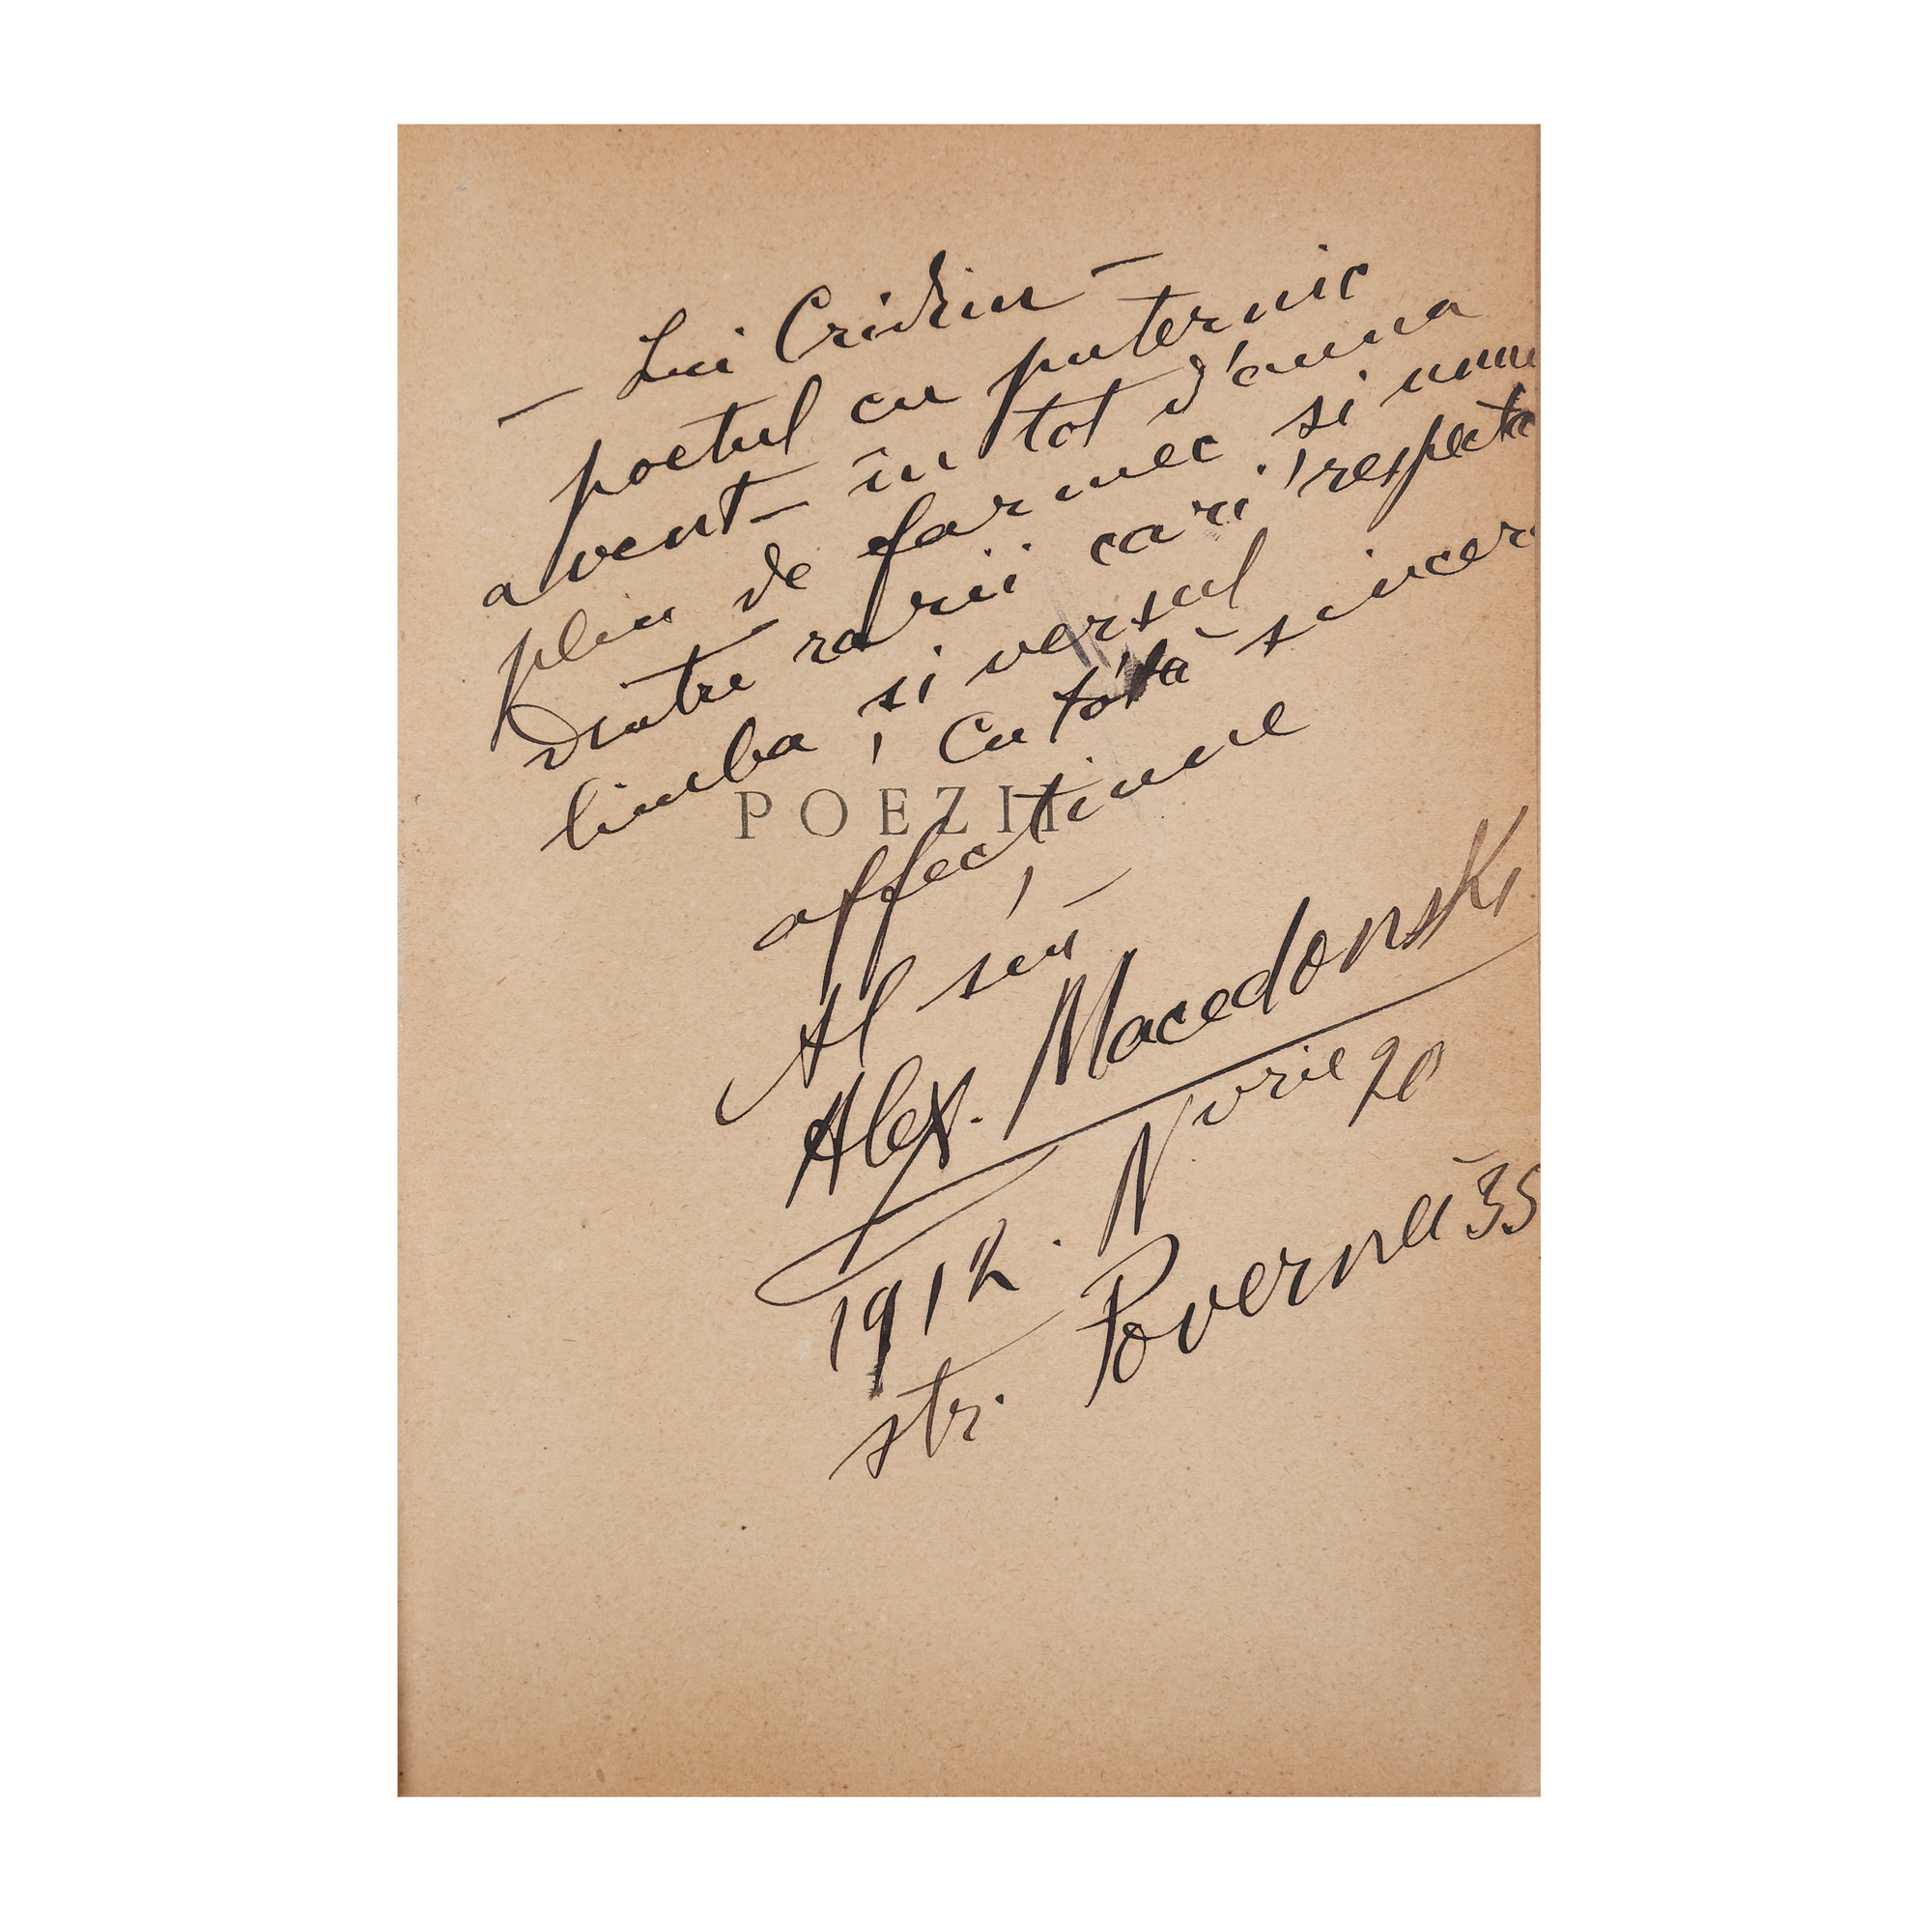 — Lui Cridim —
poetul cu puternic
avent — în tot d'auna
plin de farmec și unu
dintre rarii cari respectă
limba și versul
Cu tótă sincera
POEZII
affecțiune
Al seŭ
Alex. Macedonski
1912. Nvrie 20
str. Povernei 35